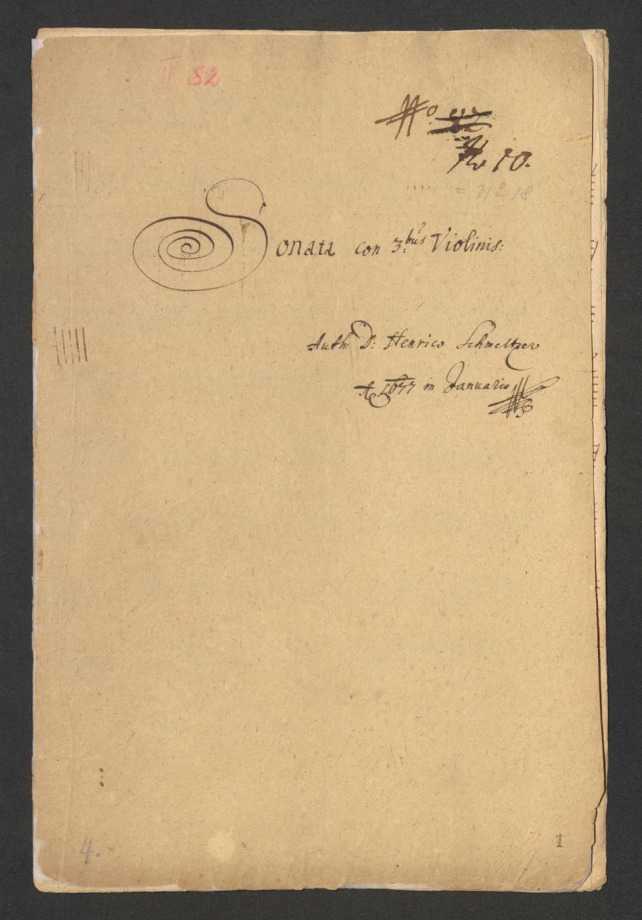 IV 82
No.
No 10.
= No 18
Sonata con 3.bus Violinis:
Auth. D: Henrico Schmeltzer
Ao 1677 in Januario
4.
1